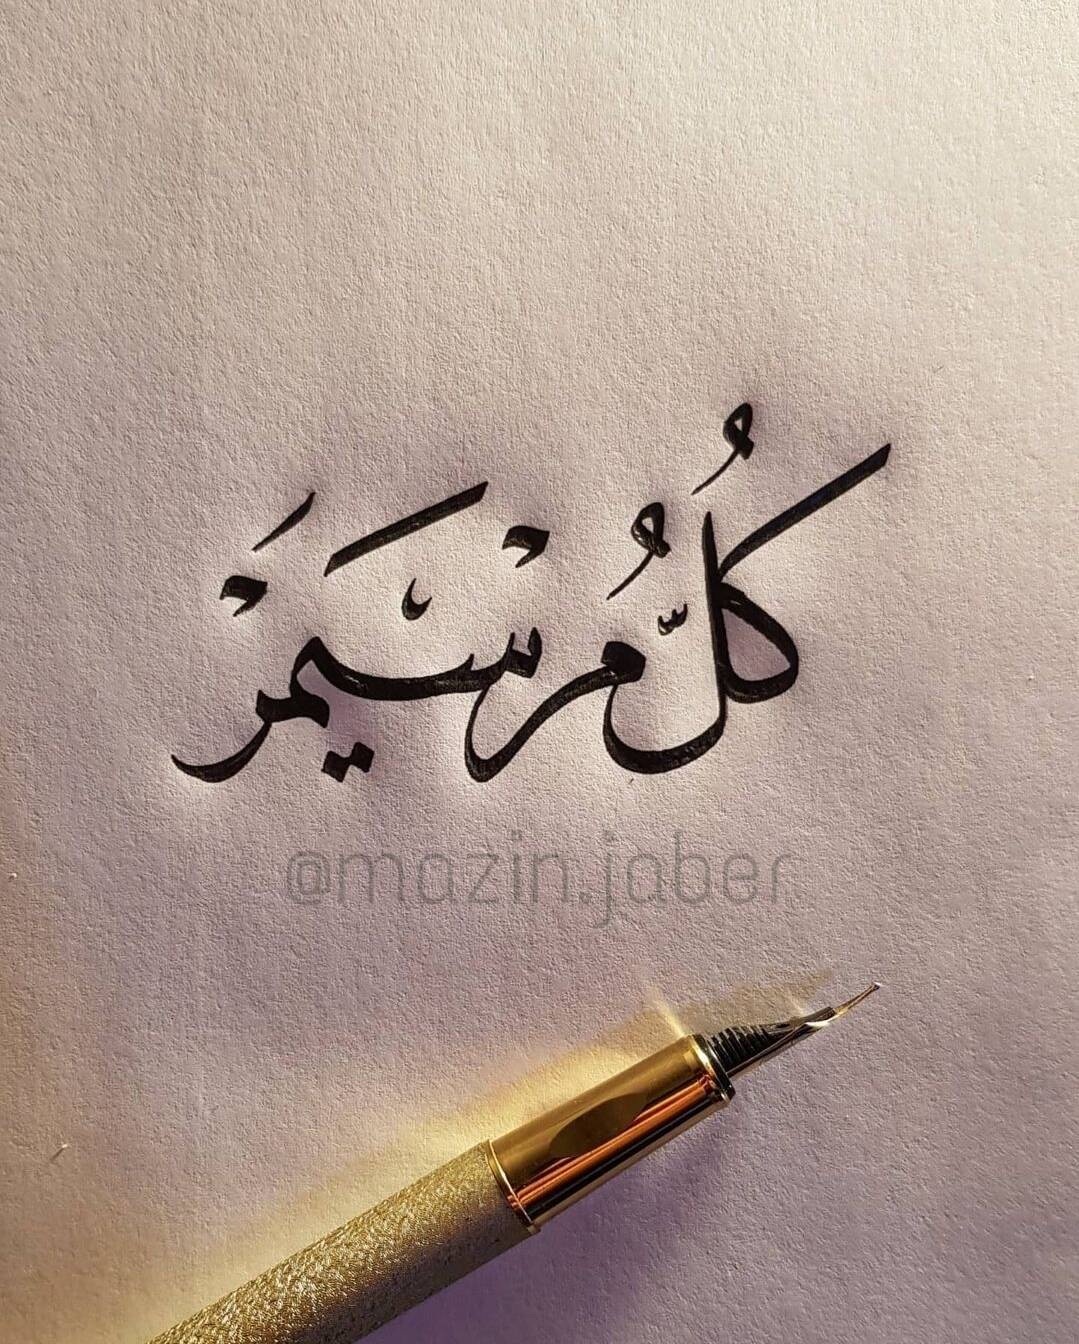 كُلّ مُرْ سَيمَرْ
@mazin.jaber